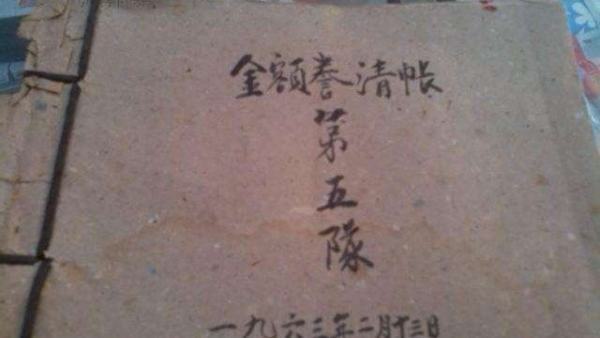 金額誊清帳
第
五
隊
一九六三年二月十三日